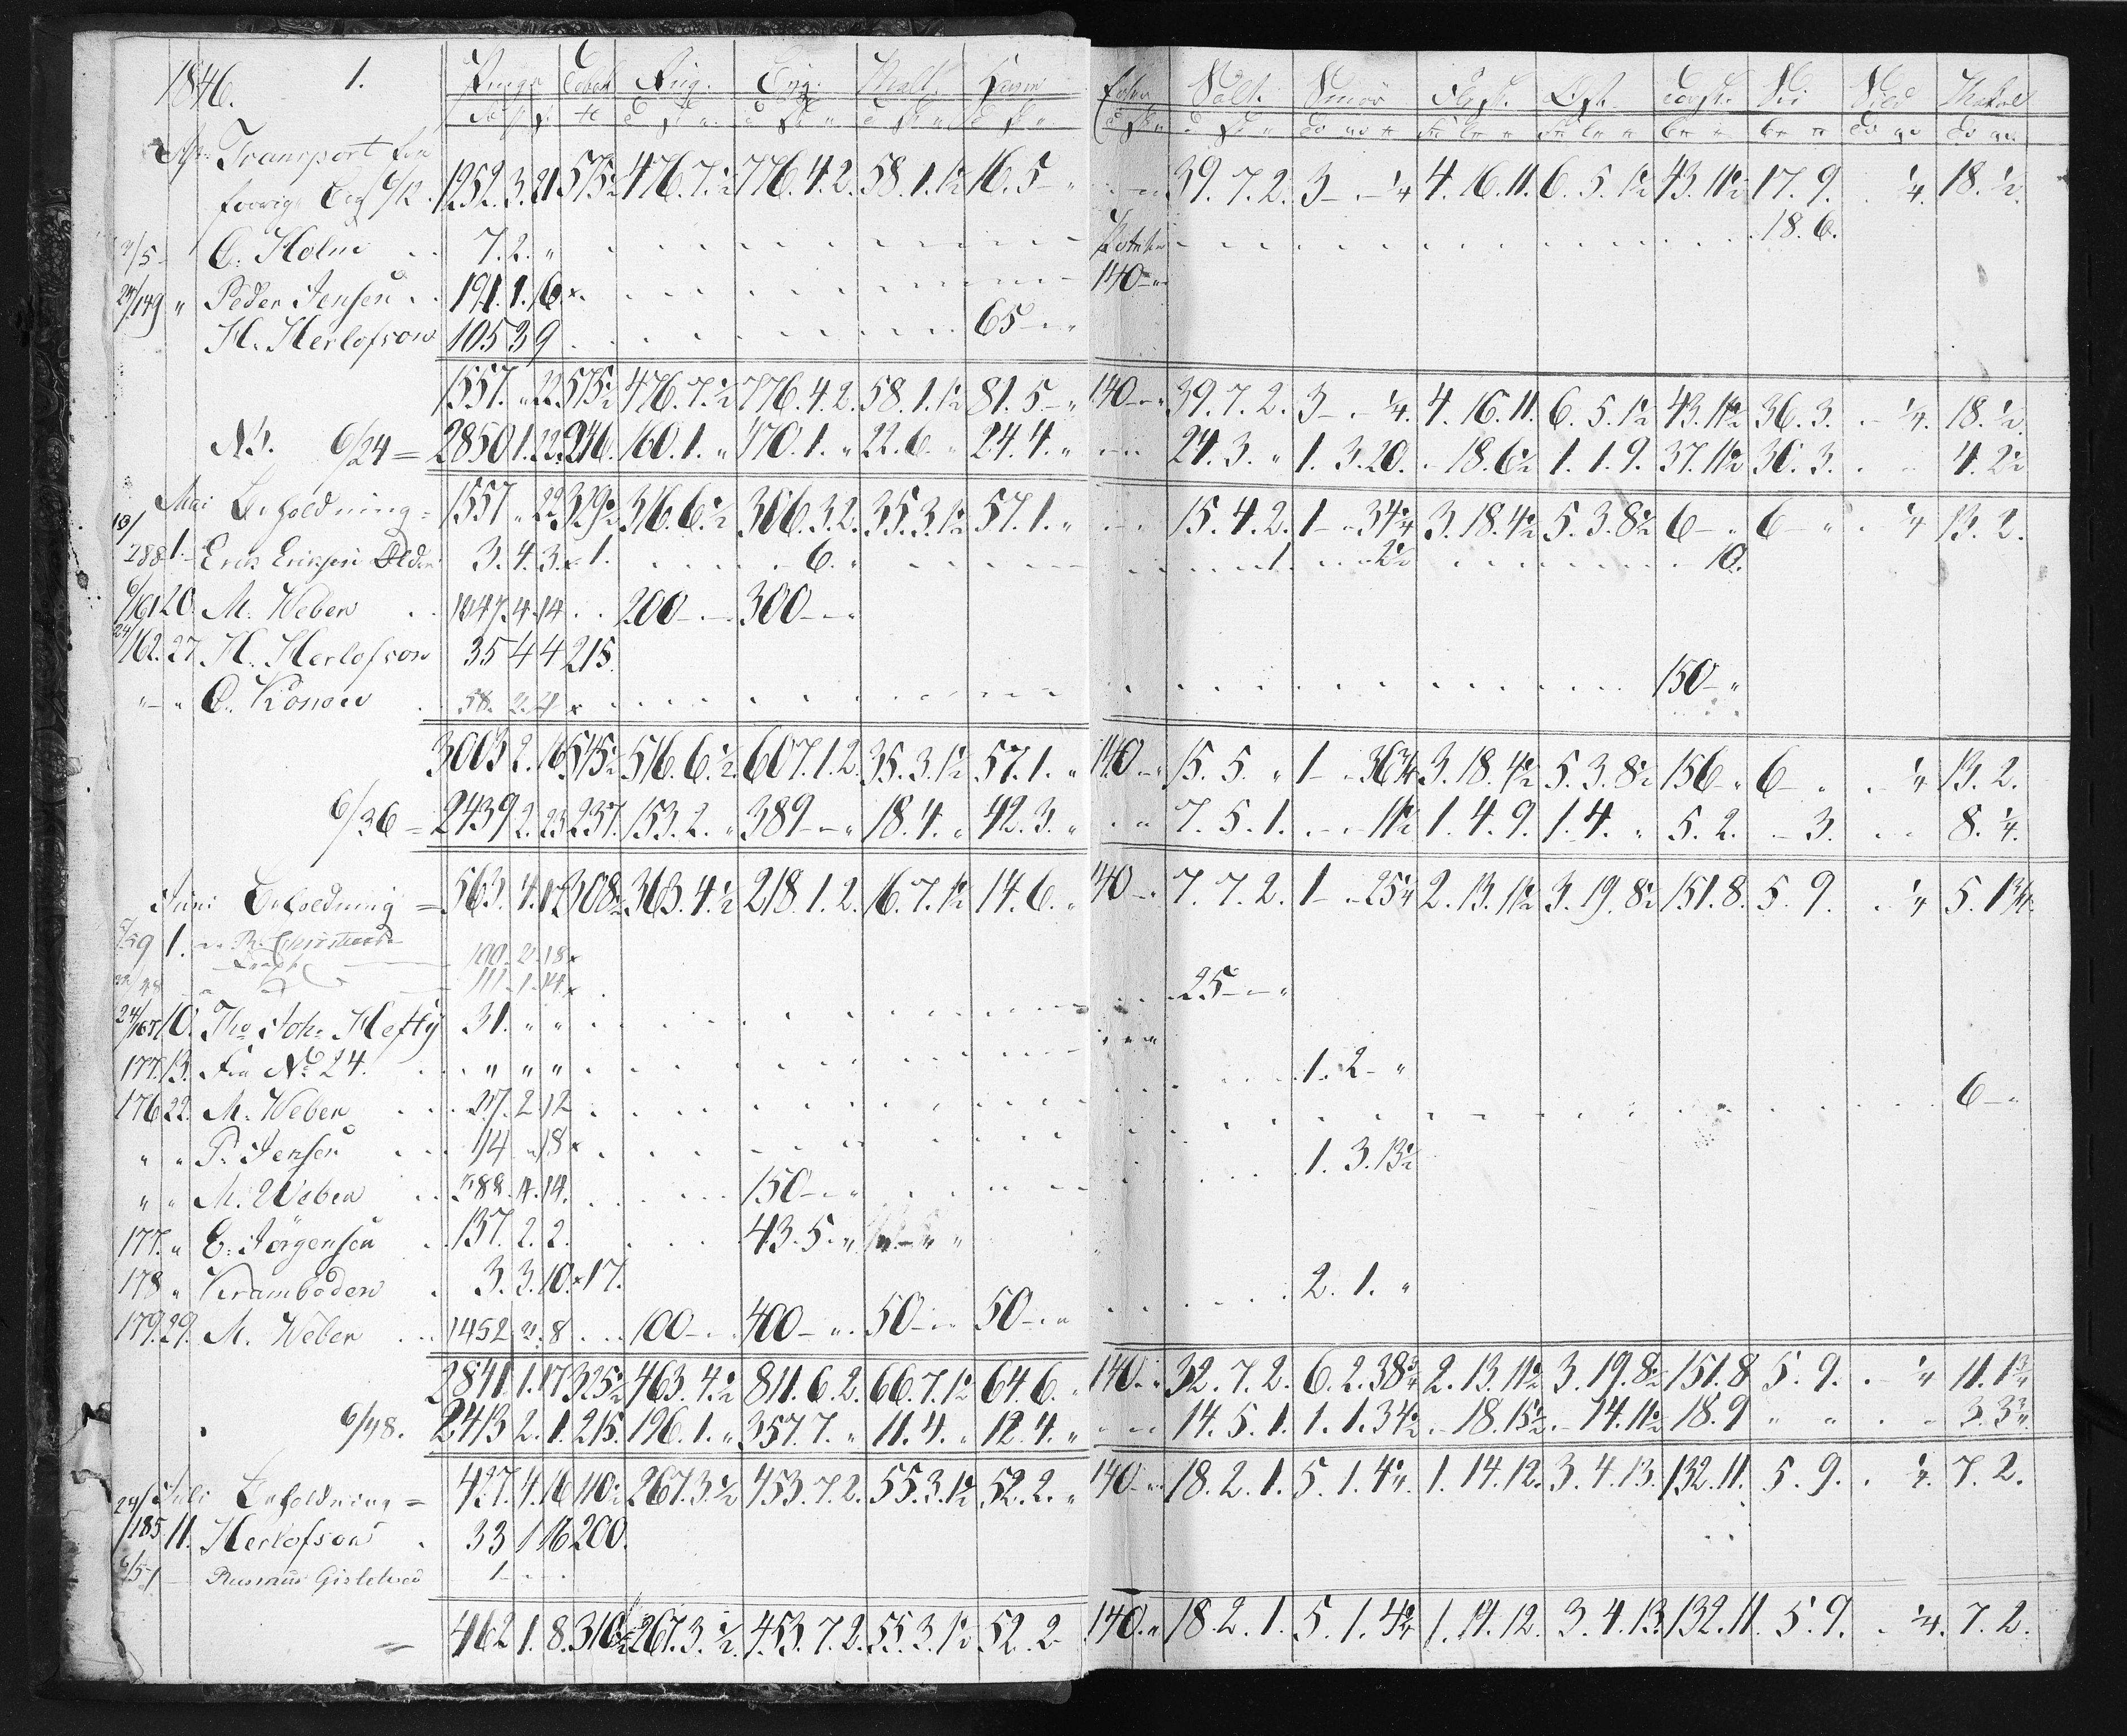 1846. 1. Penge Tobak Rug. Byg. Malt. Havre Erter Salt. Smör Flesk. Ost. Torsk. Sei Sild Makrel
Apr: Transport fra
forrige Bog 6/12. 1252. 3. 21 575½ 476. 7. ½ 776. 4. 2. 58. 1. 1½ 16. 5 - " 39. 7. 2. 3 - - ¼ 4. 16. 11. 6. 5. 1½ 43. 11½ 17. 9. ¼. 18. ½.
/5 C. Holm 7. 2. " Poteter 18. 6.
24/149 " Peder Jensen 191. 1. 16. x 140 -
H. Herlofson 105 3 9 65 - "
1557. " 22 575½ 476. 7. ½ 776. 4. 2. 58. 1. 1½ 81. 5 - " 140 - " 39. 7. 2. 3 - - ¼. 4. 16. 11. 6. 5. 1½ 43. 11½ 36. 3. ¼. 18. ½.
6/24 = 2850 1. 22. 246. 160. 1. " 470. 1. " 22. 6. " 24. 4. " 24. 3. " 1. 3. 20. - 18. 6½ 1. 1. 9. 37. 11½ 30. 3. 4. 2½
Mai Beholdning = 1557 " 22 329½ 316. 6. ½ 306. 3. 2. 35. 3. 1½ 57. 1. " 15. 4. 2. 1 - - 34¼ 3. 18. 4½ 5. 3. 8½ 6 - " 6 - " ¼ 13. 2.
10/288 1. - Erik Eriksen Olden 3. 4. 3. x 1. 6. " 1. 2½ 10.
6/61 20. M. Weber 1047. 4. 14 200 - - 300 - -
24/162. 27 H. Herlofson 35 4 4 215.
" - " O. Konow 2. 4 x 150 - "
3003 2. 16 545½ 516. 6. ½ 607. 1. 2. 35. 3. 1½ 57. 1. " 140 - " 15. 5. " 1 - - 36¾ 3. 18. 4½ 5. 3. 8½ 156 - " 6 - . ¼ 13. 2.
6/36 = 2439 2. 23 237. 153. 2. " 389 - - " 18. 4. " 42. 3. " 7. 5. 1. - - 11½ 1. 4. 9. 1. 4. " 5. 2. - 3. 8. ¼.
Juni Beholdning = 563. 4. 17 308½ 363. 4. ½ 218. 1. 2. 16. 7. 1½ 14. 6. " 140 - . 7. 7. 2. 1 - - 25¼ 2. 13. 11½ 3. 19. 8½ 151. 8. 5. 9. ¼ 5. 1¾
/59 1. 100. 2. 18 x
111. 1. 14. x 25 - - "
24/167 10. Tho Joh: Hefty 31. " "
177. 13. Fra No. 24. " " " 1. 2 - "
176 22. M. Weber 27. 2 12 6 - "
" " P. Jensen 14 " 18 x 1. 3. 13½
" " M. Weber 4. 14. 150 - - "
177. " E. Jörgensen 137. 2. 2. 43. 5. "
178 " Kramboden 3. 3. 10. x 17. 2. 1. "
179. 29. M. Weber 1452 2. 8 100 - - 400 - ". 50 - - 50 - - "
2841 1. 17 325½ 463. 4. ½ 811. 6. 2. 66. 7. 1½ 64 6. " 140. " 32. 7. 2. 6. 2. 38¾ 2. 13. 11½ 3. 19. 8½ 151. 8 5. 9. ¼ 11. 1¾
6/48. 2413 2. 1. 215. 196. 1. " 357. 7. " 11. 4. " 12. 4. " 14. 5. 1. 1. 1. 34½ - 18. 15½ - 14. 11½ 18. 9 " " 3. 3¾
Juli Beholdning = 427. 4. 16 110½ 267. 3. ½ 453. 7. 2. 55. 3. 1½ 52. 2. " 140 - " 18. 2. 1. 5. 1. 4¼. 1. 14. 12. 3. 4. 13. 132. 11. 5. 9. ¼. 7. 2.
24/185 11. Herlofson 33 1 16 200.
6/51 - Rasmus 1 - -
= 462 1. 8. 310½ 267. 3. ½ 453. 7. 2. 55. 3. 1½ 52. 2 - 140. " 18. 2. 1. 5. 1. 4¼ 1. 14. 12. 3. 4. 13. 132. 11. 5. 9. ¼. 7. 2.